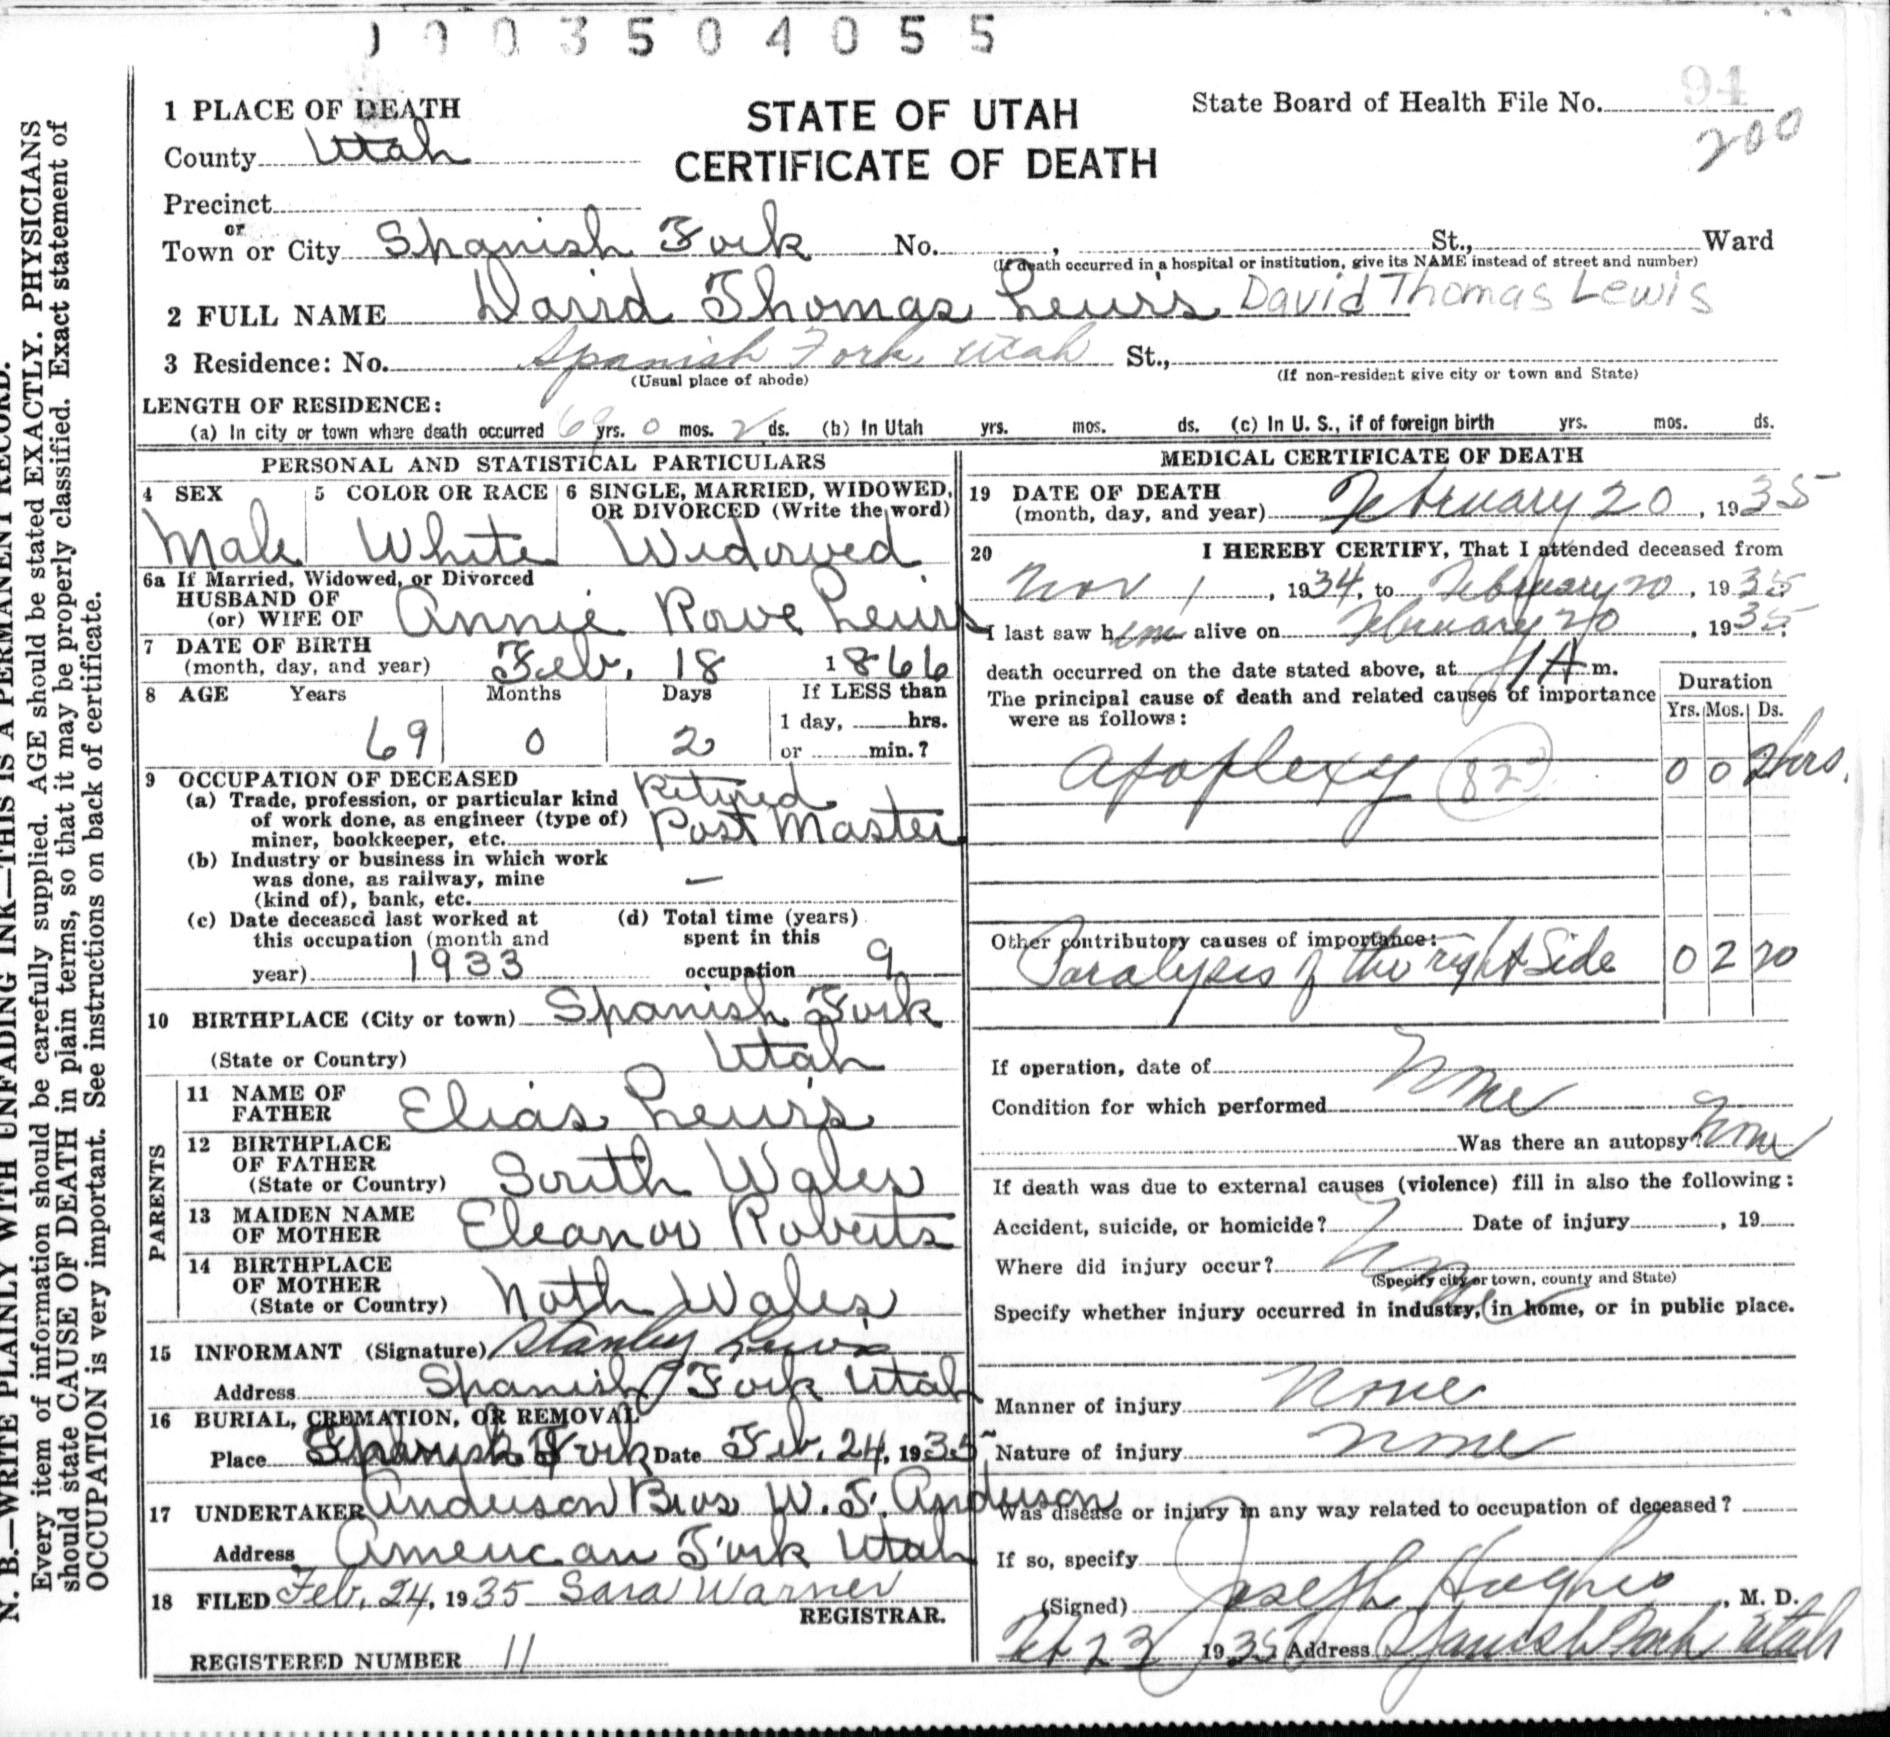 1003504055
94
200
1 PLACE OF DEATH
STATE OF UTAH
CERTIFICATE OF DEATH
State Board of Health File No.
County Utah
Precinct
or
Town or City Spanish Fork No. , St., Ward
(If death occurred in a hospital or institution, give its NAME instead of street and number)
2 FULL NAME David Thomas Lewis David Thomas Lewis
3 Residence: No. Spanish Fork, Utah St.,
(Usual place of abode) (If non-resident give city or town and State)
LENGTH OF RESIDENCE:
(a) In city or town where death occurred 69 yrs. 0 mos. 2 ds. (b) In Utah yrs. mos. ds. (c) In U. S., if of foreign birth yrs. mos. ds.
PERSONAL AND STATISTICAL PARTICULARS
4 SEX 5 COLOR OR RACE 6 SINGLE, MARRIED, WIDOWED, OR DIVORCED (Write the word)
Male White Widowed
6a If Married, Widowed, or Divorced
HUSBAND OF
(or) WIFE OF Annie Rowe Lewis
7 DATE OF BIRTH
(month, day, and year) Feb. 18 1866
8 AGE Years Months Days If LESS than
1 day, hrs.
69 0 2 or min.?
9 OCCUPATION OF DECEASED
(a) Trade, profession, or particular kind Retired
of work done, as engineer (type of) Post Master
miner, bookkeeper, etc.
(b) Industry or business in which work
was done, as railway, mine —
(kind of), bank, etc.
(c) Date deceased last worked at (d) Total time (years)
this occupation (month and spent in this
year) 1933 occupation 9
10 BIRTHPLACE (City or town) Spanish Fork
(State or Country) Utah
PARENTS
11 NAME OF
FATHER Elias Lewis
12 BIRTHPLACE
OF FATHER
(State or Country) South Wales
13 MAIDEN NAME
OF MOTHER Eleanor Roberts
14 BIRTHPLACE
OF MOTHER
(State or Country) Noth Wales
15 INFORMANT (Signature) Stanley Lewis
Address Spanish Fork Utah
16 BURIAL, CREMATION, OR REMOVAL
Place Spanish Fork Date Feb. 24, 1935
17 UNDERTAKER Anderson Bros W. J. Anderson
Address American Fork Utah
18 FILED Feb. 24, 1935 Sara Warner
REGISTRAR.
REGISTERED NUMBER 11
MEDICAL CERTIFICATE OF DEATH
19 DATE OF DEATH
(month, day, and year) February 20, 1935
20 I HEREBY CERTIFY, That I attended deceased from
Nov 1, 1934, to February 20, 1935
I last saw him alive on February 20, 1935;
death occurred on the date stated above, at 1 A m.
The principal cause of death and related causes of importance
were as follows:
Duration
Yrs. Mos. Ds.
Apoplexy 82 0 0 2hrs.
Other contributory causes of importance:
Paralysis of the right Side 0 2 20
If operation, date of
Condition for which performed None
Was there an autopsy? None
If death was due to external causes (violence) fill in also the following:
Accident, suicide, or homicide? Date of injury , 19
Where did injury occur? None
(Specify city or town, county and State)
Specify whether injury occurred in industry, in home, or in public place.
Manner of injury None
Nature of injury None
Was disease or injury in any way related to occupation of deceased?
If so, specify
(Signed) Joseph Hughes, M. D.
23 1935 Address Spanish Fork Utah
N. B.—WRITE PLAINLY WITH UNFADING INK—THIS IS A PERMANENT RECORD.
Every item of information should be carefully supplied. AGE should be stated EXACTLY. PHYSICIANS
should state CAUSE OF DEATH in plain terms, so that it may be properly classified. Exact statement of
OCCUPATION is very important. See instructions on back of certificate.